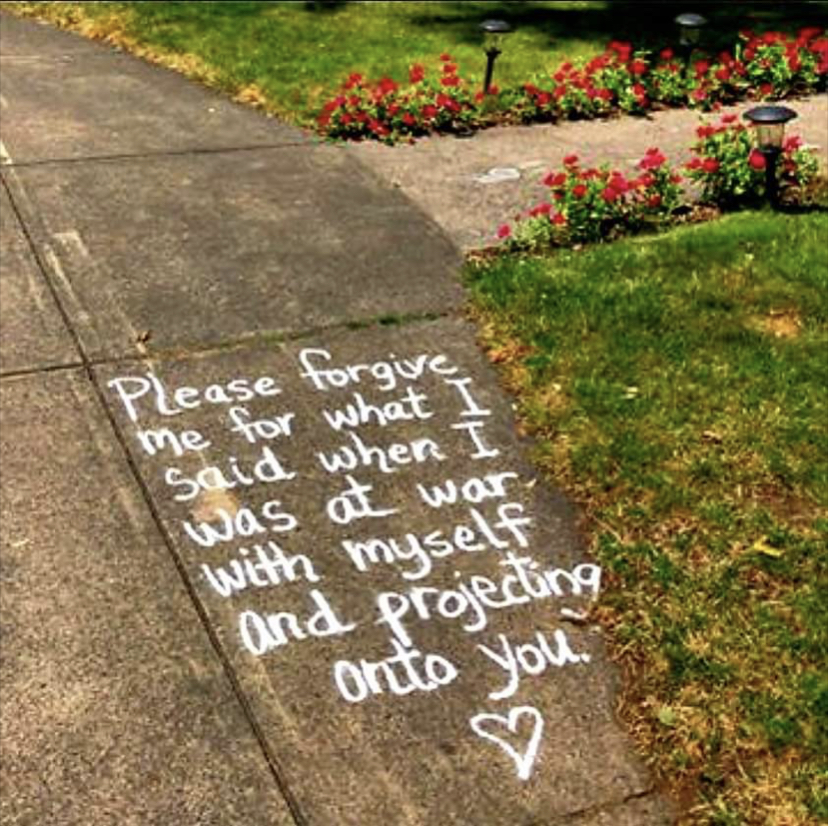 Please forgive
me for what I
said when I
was at war
with myself
and projecting
onto you.